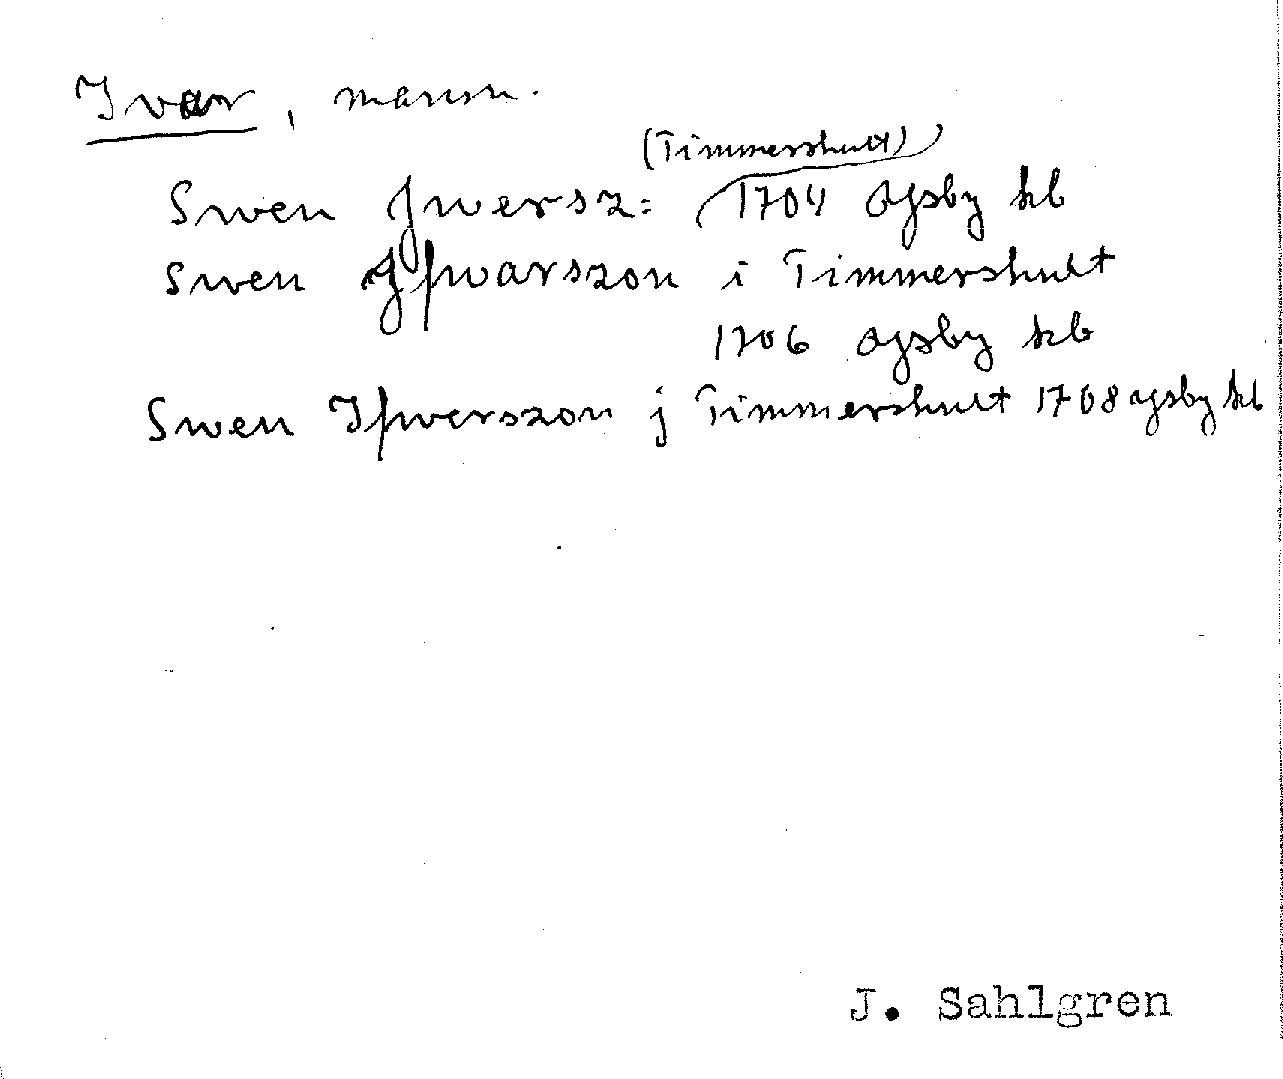 Ivar, mansn.
(Timmershult)
Swen Jwersz: 1704 Agsby kb
Swen Jfwarszon i Timmershult
1706 Agsby kb
Swen Ifwerszon j Timmershult 1708 Agsby kb
J. Sahlgren